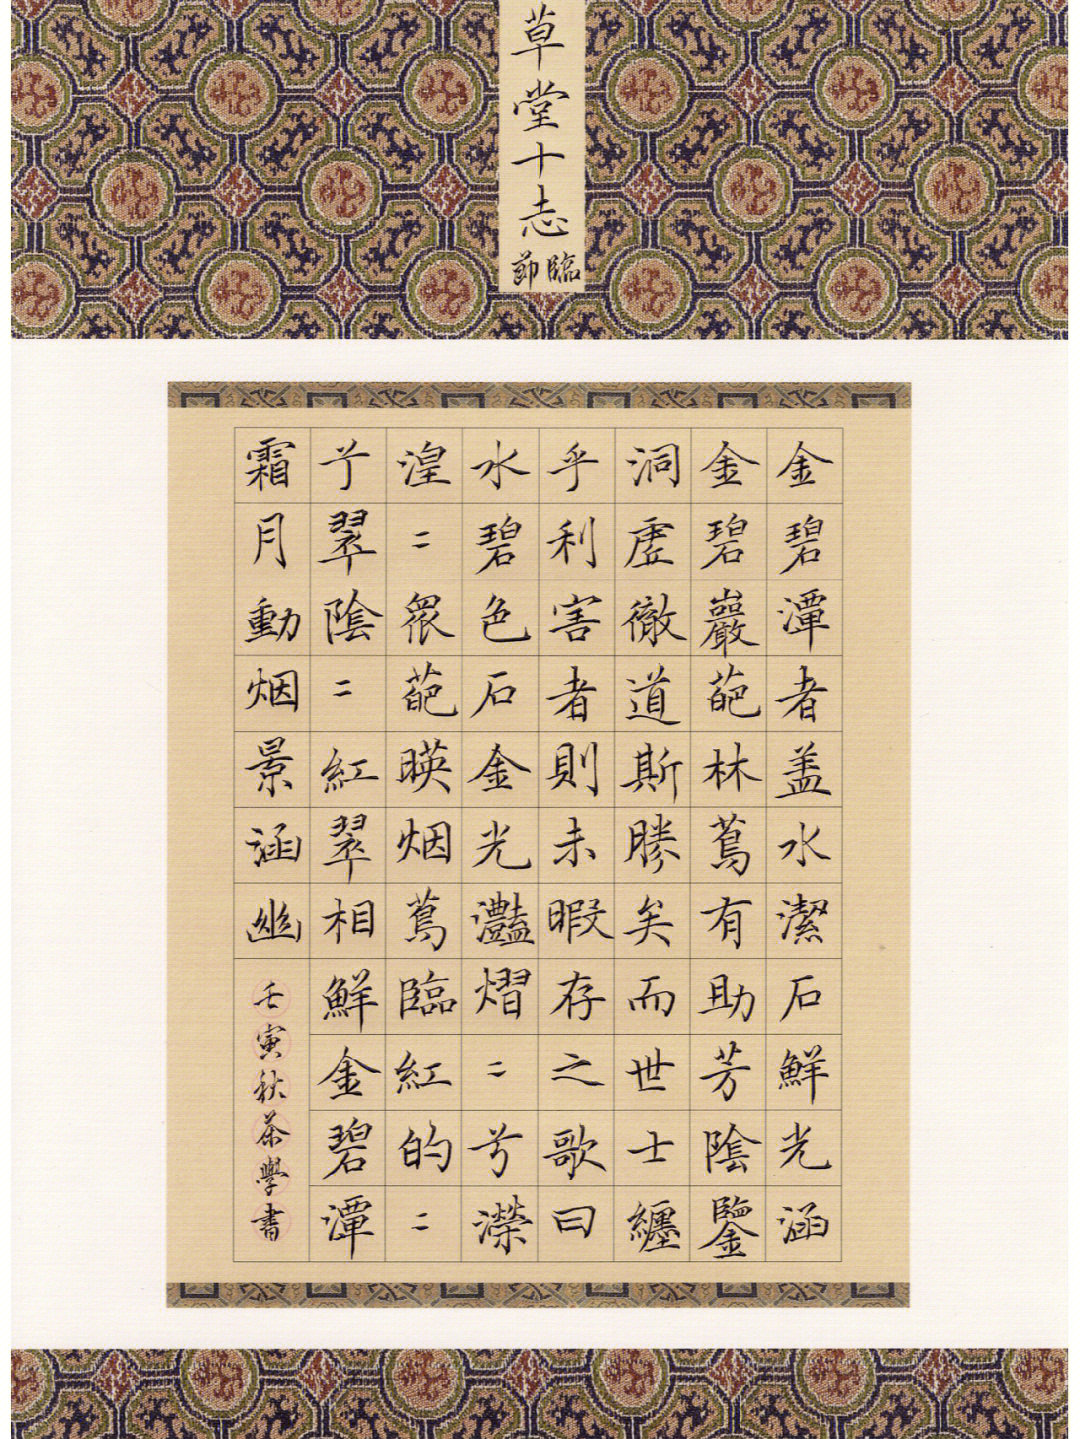 草堂十志
節臨
金碧潭者盖水潔石鮮光涵
金碧巖葩林蔦有助芳陰鑒
洞虛徹道斯勝矣而世士纏
乎利害者則未暇存之歌曰
水碧色石金光灩熠=兮瀠
湟=眾葩暎烟蔦臨紅的=
兮翠陰=紅翠相鮮金碧潭
霜月動烟景涵幽
壬寅秋茶學書